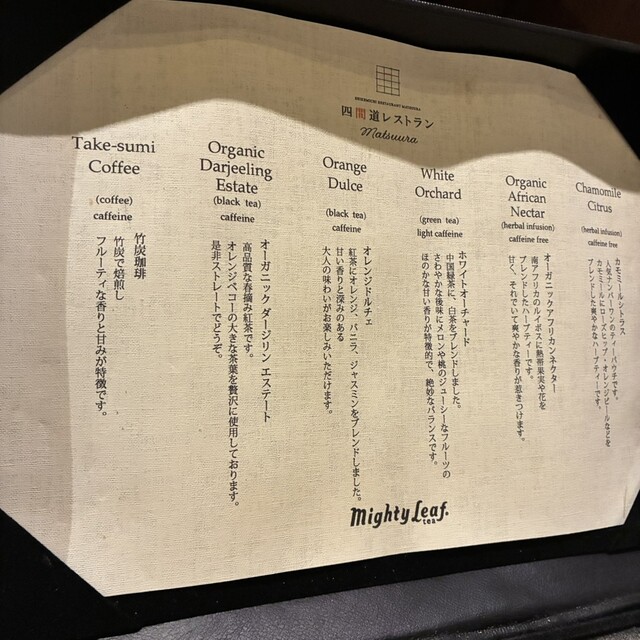 SHIKEMICHI RESTAURANT MATSUURA
四間道レストラン
Matsuura
Take-sumi
Coffee
(coffee)
caffeine
竹炭珈琲
竹炭で焙煎し
フルーティな香りと甘みが特徴です。
Organic
Darjeeling
Estate
(black tea)
caffeine
オーガニック ダージリン エステート
高品質な春摘み紅茶です。
オレンジペコーの大きな茶葉を贅沢に使用しております。
是非ストレートでどうぞ。
Orange
Dulce
(black tea)
caffeine
オレンジドルチェ
紅茶にオレンジ、バニラ、ジャスミンをブレンドしました。
甘い香りと深みのある
大人の味わいがお楽しみいただけます。
White
Orchard
(green tea)
light caffeine
ホワイトオーチャード
中国緑茶に、白茶をブレンドしました。
さわやかな後味にメロンや桃のジューシーなフルーツの
ほのかな甘い香りが特徴的で、絶妙なバランスです。
Organic
African
Nectar
(herbal infusion)
caffeine free
オーガニックアフリカンネクター
南アフリカのルイボスに熱帯果実や花を
ブレンドしたハーブティーです。
甘く、それでいて爽やかな香りが惹きつけます。
Chamomile
Citrus
(herbal infusion)
caffeine free
カモミールシトラス
人気ナンバーワンのティーパウチです。
カモミールにローズヒップ・オレンジピールなどを
ブレンドした爽やかなハーブティーです。
Mighty Leaf.
tea